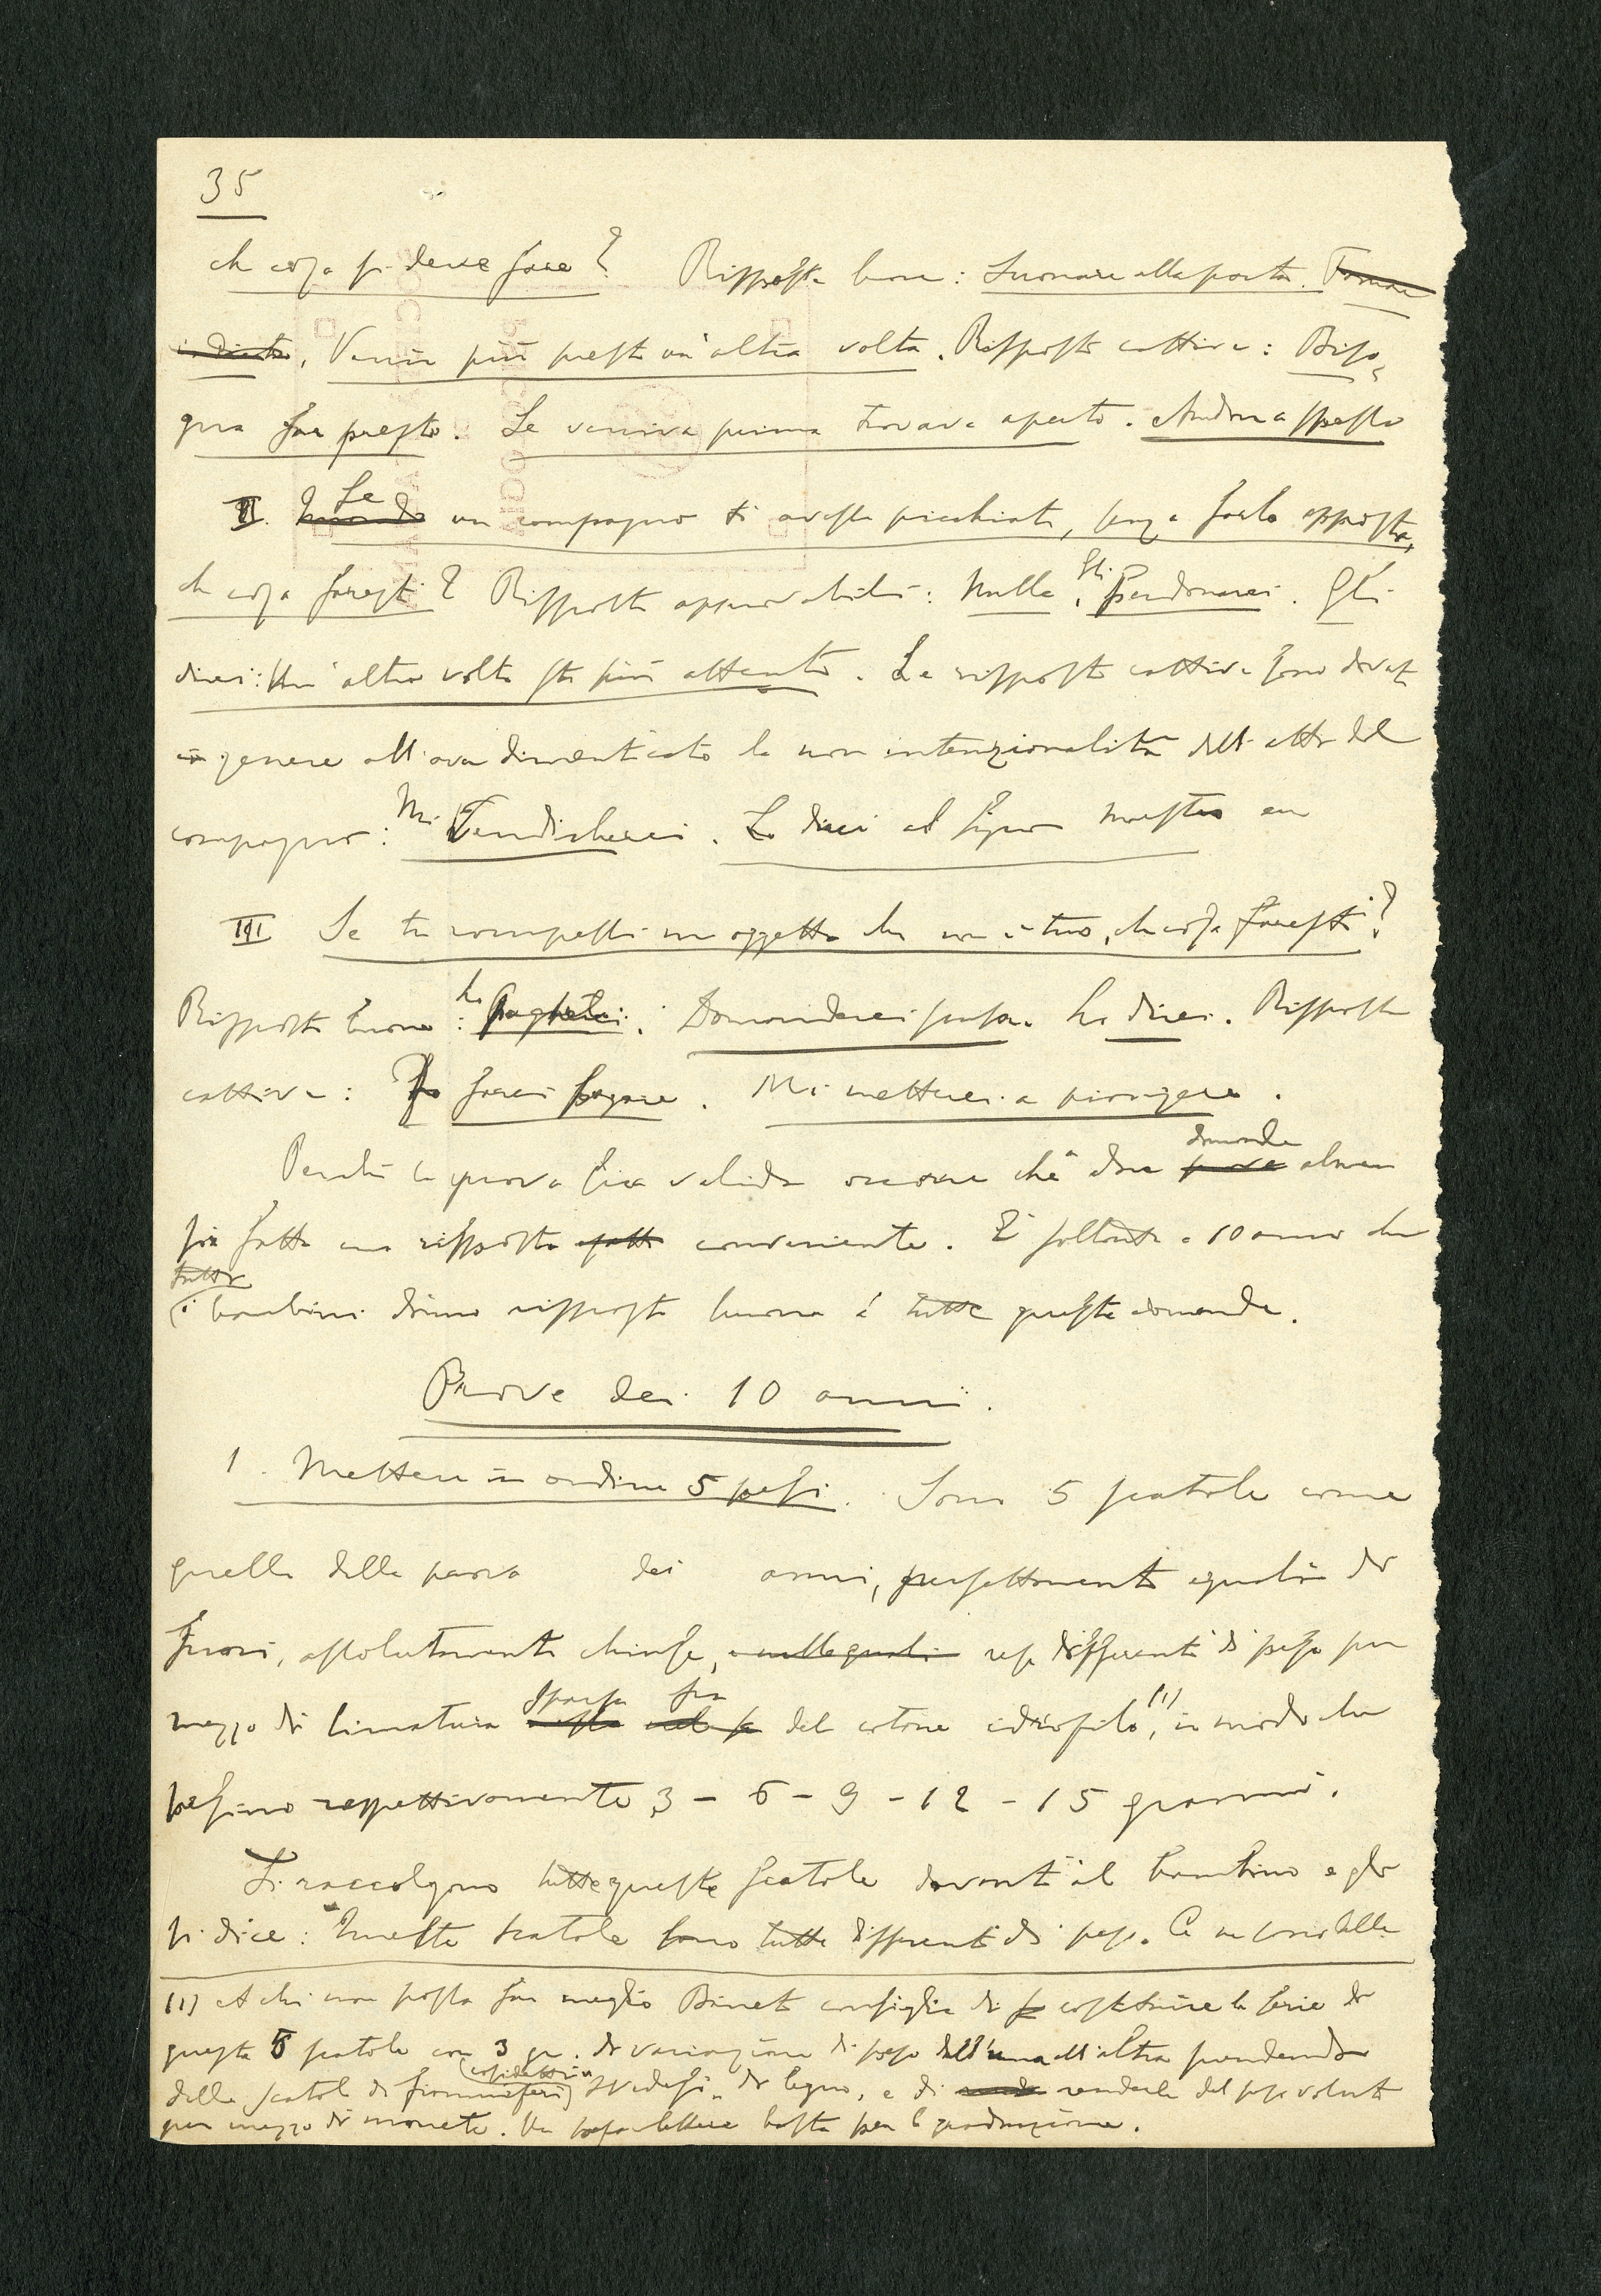 35
che cosa si deve fare? Risposte buone: Suonare alla porta. Tornare
indietro, Venir più presto un'altra volta. Risposte cattive: Biso-
gna far presto. Se veniva prima trovava aperto. Andrà a spasso
II. Quando Se un compagno ti avesse picchiato, senza farlo apposta,
che cosa faresti? Risposte approvabili: Nulla, Gli Perdonerei. Gli
direi: Un'altra volta sta più attento. Le risposte cattive sono dovute
in genere all'aver dimenticato la non intenzionalità dell'atto del
compagno: Mi Vendicherei. Lo direi al signor maestro
III Se tu rompessi un oggetto che non è tuo, che cosa faresti?
Risposte buone: Lo pagherei. Domanderei scusa. Lo direi. Risposte
cattive: Lo farei pagare. Mi metterei a piangere.
Perchè la prova sia valida occorre che a due prove domande almeno
sia fatta una risposta conveniente. È soltanto a 10 anni che
tutti
i bambini danno risposte buone a tutte queste domande.
Prove dei 10 anni.
1. Mettere in ordine 5 pesi. Sono 5 scatole come
quelle della prova dei anni, perfettamente eguali di
fuori, assolutamente chiuse, e nelle quali rese differenti di peso per
mezzo di limatura sparsa fra del cotone idrofilo (1), in modo che
pesino rispettivamente 3 - 6 - 9 - 12 - 15 grammi.
Si raccolgono tutte queste scatole davanti al bambino e gli
si dice: Queste scatole sono tutte differenti di peso. Ce ne sono delle
(1) A chi non possa far meglio Binet consiglia di costruire la serie di
queste 5 scatole con 3 gr. di variazione di peso dall'una all'altra prendendo
delle scatole di fiammiferi (cosidetti svedesi) di legno, e di renderle del peso voluto
per mezzo di monete. Un pesa lettere basta per la graduazione.